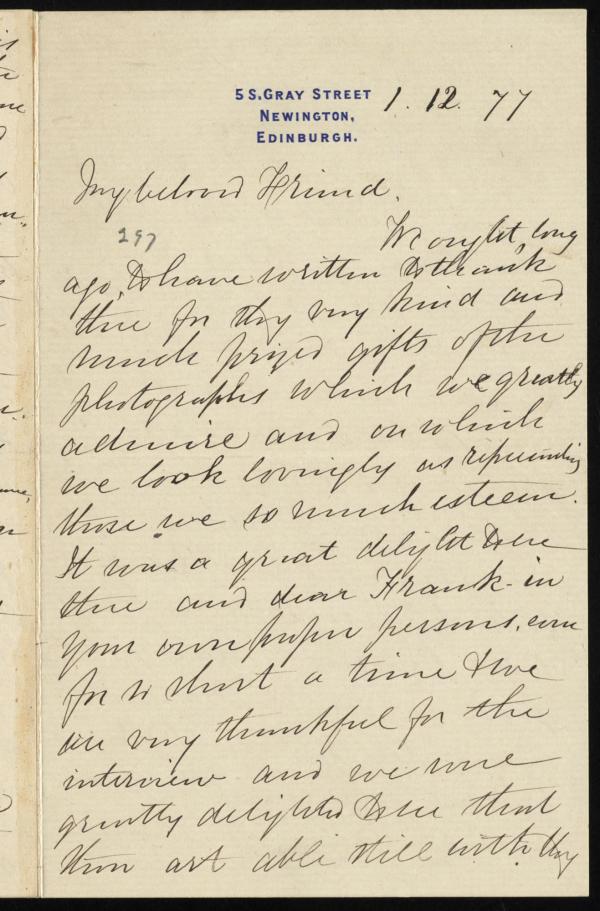 5 S. GRAY STREET
NEWINGTON,
EDINBURGH.
1. 12. 77
My beloved Friend.
297
We ought, long
ago, to have written to thank
thee for thy very kind and
much prized gifts of the
photographs which we greatly
admire and on which
we look lovingly as representing
those we so much esteem.
It was a great delight to see
thee and dear Frank - in
your own proper persons, even
for so short a time & we
are very thankful for the
interview and we were
greatly delighted to see that
thou art able still with thy